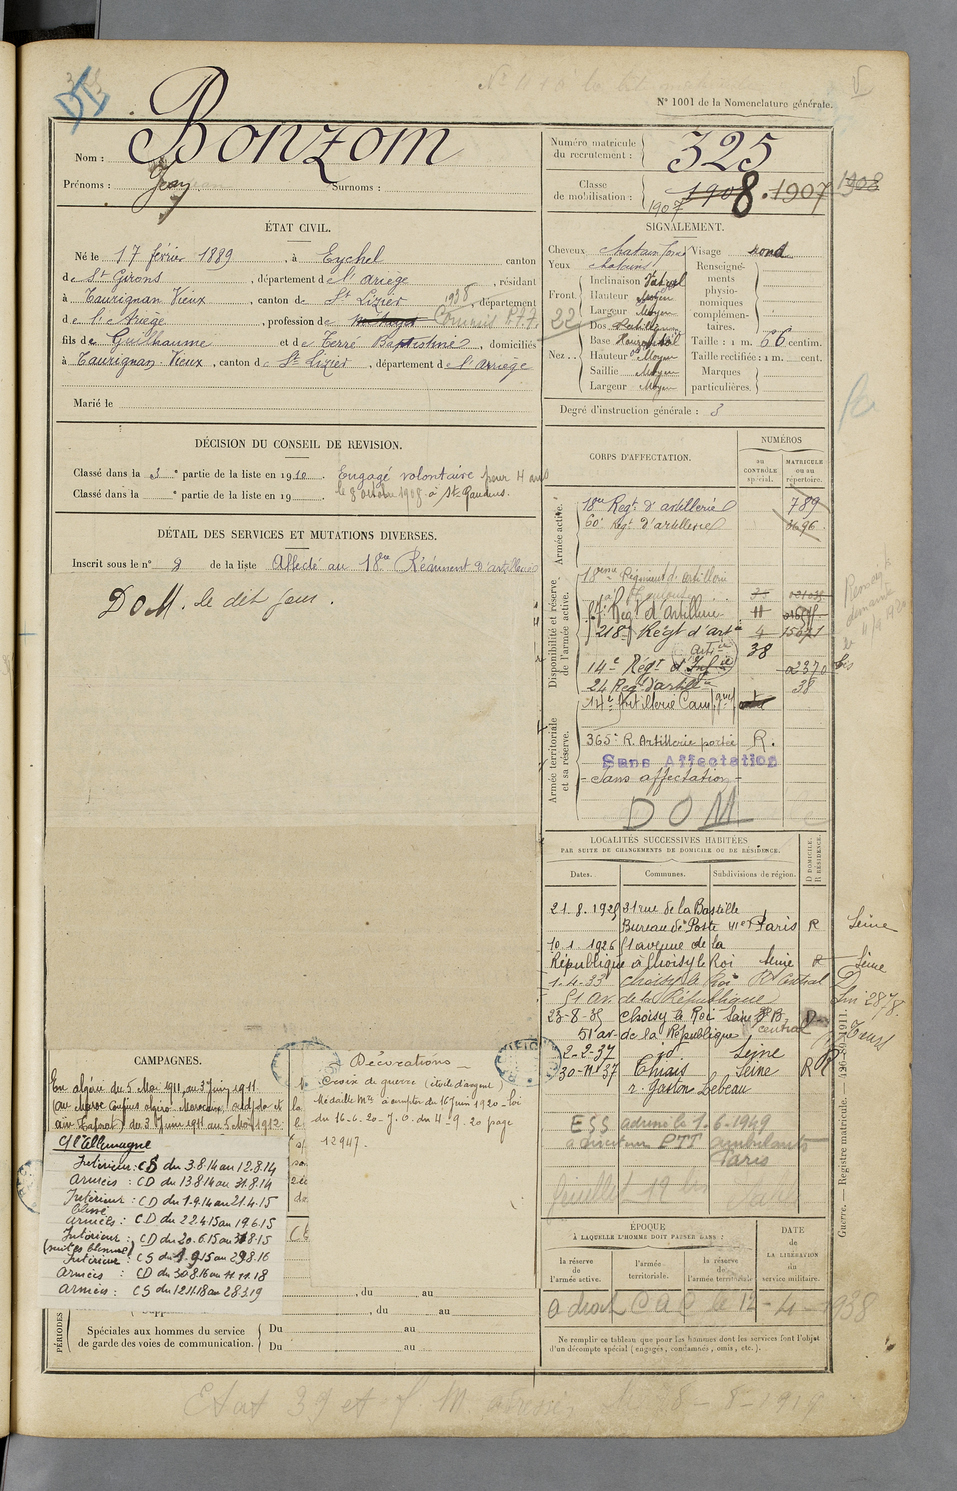 N° 1001 de la Nomenclature générale.
Nom : Bonzom
Prénoms : Jean Surnoms :
Numéro matricule du recrutement : 325
Classe de mobilisation : 1908 . 1907 1908
1907
ÉTAT CIVIL.
Né le 17 février 1889, à Eychel canton
de St Girons, département de l'Ariège, résidant
à Taurignan Vieux, canton de St Lizier 1938, département
de l'Ariège, profession de Commis P.T.T.
fils de Guilhaume et de Terré Baptistine, domiciliés
à Taurignan-Vieux, canton de St Lizier, département de l'Arriège
Marié le
SIGNALEMENT.
Cheveux chatain foncé Visage rond
Yeux chatains
Front Inclinaison Vertical
Hauteur Moyen
Largeur Moyen
22
Nez Dos Rectiligne
Base Horizontal
Hauteur Moyen
Saillie Moyen
Largeur Moyen
Renseignements physionomiques complémentaires.
Taille : 1 m. 66 centim.
Taille rectifiée : 1 m. cent.
Marques particulières.
Degré d'instruction générale : 3
DÉCISION DU CONSEIL DE REVISION.
Classé dans la 3e partie de la liste en 1910. Engagé volontaire pour 4 ans
Classé dans la e partie de la liste en 19 . le 8 octobre 1908 à St Gaudens.
DÉTAIL DES SERVICES ET MUTATIONS DIVERSES.
Inscrit sous le n° 2 de la liste Affecté au 18me Régiment d'artillerie
DOM. le dit jour.
CORPS D'AFFECTATION.
NUMÉROS
au CONTRÔLE spécial.
MATRICULE ou au répertoire.
Armée active.
18me Regt d'artillerie 789
60e Regt d'artillerie 3696
Disponibilité et réserve de l'armée active.
18eme Régiment d'artillerie
à Toulouse
Régt d'artillerie 11
218e Régt d'Artie 4 15071
38
14e Régt d'Infie Artie 2370 bis
24 Regt d'artillie 38
14e Artillerie Camp gne
Armée territoriale et sa réserve.
365e R. Artillerie portée R.
Sans Affectation
- Sans affectation -
DOM
LOCALITÉS SUCCESSIVES HABITÉES
PAR SUITE DE CHANGEMENTS DE DOMICILE OU DE RÉSIDENCE.
Dates. Communes. Subdivisions de région. D DOMICILE. R RÉSIDENCE.
21.8.1925 31 rue de la Bastille
Bureau de Poste Paris R Seine
10.1.1926 51 avenue de la
République à Choisy le Roi Seine R Seine
1-4-33 Choisy le Roi Bn Central D
51 av. de la République
23-8-35 Choisy le Roi Seine
51 av. de la République central
2-2-37 id. Seine
30-11-37 Thiais Seine R
r. Gaston Lebeau
ESS adrino le 1.6.1949
ancien PTT ambulant
Paris
CAMPAGNES.
En algérie du 5 Mai 1911 au 3 Juin 1911.
(au Maroc Confins algéro-Marocains,
du 3 Juin 1911 au 5 Mai 1912.
C/ l'Allemagne
Intérieur : CS du 3.8.14 au 12.8.14
Armées : CD du 13.8.14 au 31.8.14
Intérieur : CD du 1.9.14 au 21.4.15
blessé
Armées : CD du 22.4.15 au 19.6.15
Intérieur : CD du 20.6.15 au 31.8.15
(suites blessure)
Intérieur : CS du 1.9.15 au 29.8.16
Armées : CD du 30.8.16 au 11.11.18
Armées : CS du 12.11.18 au 28.3.19
Décorations
Croix de guerre (étoile d'argent)
Médaille Mre à compter du 16 Juin 1920 - loi
du 16.6.20 - J.O. du 4.9.20 page
12947.
, du au
, du au
PÉRIODES
Spéciales aux hommes du service de garde des voies de communication.
Du au
Du au
ÉPOQUE
À LAQUELLE L'HOMME DOIT PASSER DANS :
la réserve de l'armée active.
l'armée territoriale.
la réserve de l'armée territoriale
DATE DE LA LIBÉRATION du service militaire.
a droit CAC le 12-4-1938
Ne remplir ce tableau que pour les hommes dont les services font l'objet
d'un décompte spécial (engagés, condamnés, omis, etc.).
Guerre. — Registre matricule. —
Etat 39 et 8-8-1919